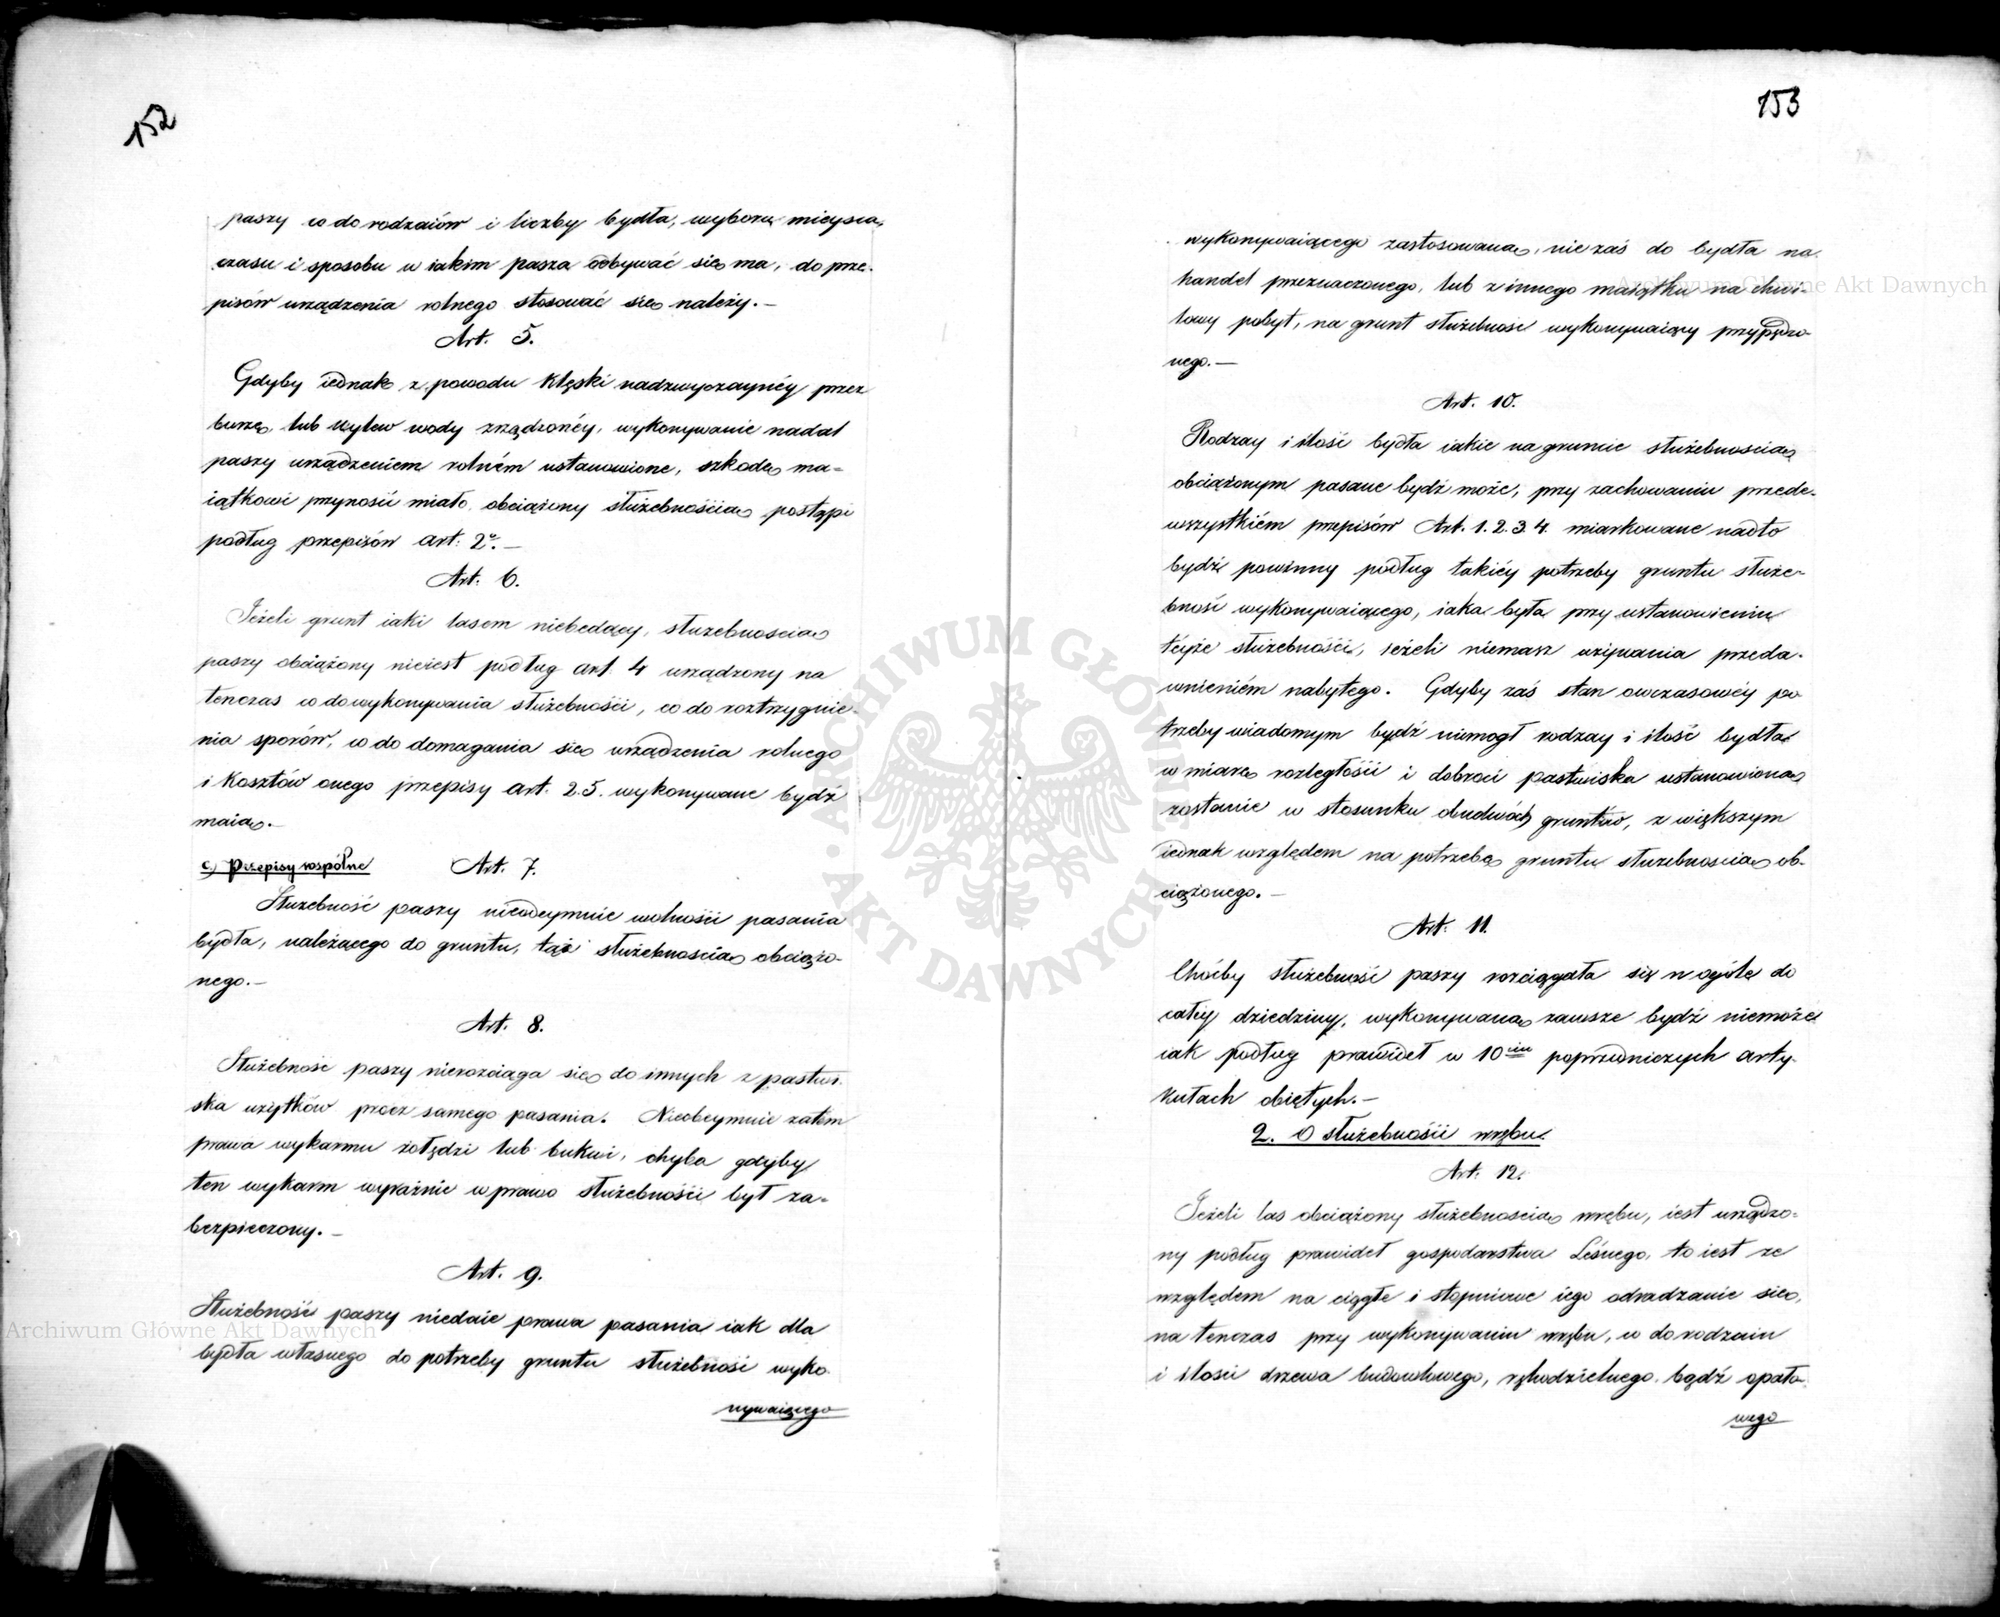 152
paszy co do rodzaiów i liczby bydła, wyboru mieysca,
czasu i sposobu w iakim pasza odbywać się ma, do prze-
pisów urządzenia rolnego stosować się należy.—
Art. 5.
Gdyby iednak z powodu klęski nadzwyczaynéy przez
burzę, lub wylew wody zrządzonéy, wykonywanie nadal
paszy urządzeniem rolném ustanowione, szkodę ma-
iątkowi przynosić miało, obciążony służebnością postąpi
podług przepisów art: 2º.—
Art. 6.
Jeżeli grunt iaki lasem niebędący, służebnością
paszy obciążony nieiest podług art. 4 urządzony na
tenczas co do wykonywania służebności, co do roztrzygnie-
nia sporów, co do domagania się urządzenia rolnego
i kosztów onego przepisy art. 2.5. wykonywane bydź
maią.—
c) Przepisy wspólne Art. 7.
Służebność paszy nieodeymuie wolności pasania
bydła, należącego do gruntu, tąż służebnością obciążo-
nego.—
Art. 8.
Służebność paszy nierozciąga się do innych z pastwi-
ska użytków prócz samego pasania. Nieobeymuie zatém
prawa wykarmu żołędzi lub bukwi, chyba gdyby
ten wykarm wyraźnie w prawo służebności był za-
bezpieczony.—
Art. 9.
Służebność paszy niedaie prawa pasania iak dla
bydła własnego do potrzeby gruntu służebność wyko-
nywaiącego
153
wykonywaiącego zastosowana, nie zaś do bydła na
handel przeznaczonego, lub z innego maiątku na chwi-
lowy pobyt, na grunt służebność wykonywaiący przypędzo-
nego.—
Art. 10.
Rodzay i ilość bydła iakie na gruncie służebnością
obciążonym pasane bydź może, przy zachowaniu przede-
wszystkiém przepisów Art. 1. 2. 3. 4. miarkowane nadto
bydź powinny podług takiéy potrzeby gruntu służe-
bność wykonywaiącego, iaka była przy ustanowieniu
téyże służebności, ieżeli niemasz używania przeda-
wnieniém nabytego. Gdyby zaś stan owczasowéy po
trzeby wiadomym bydź niemogł rodzay i ilość bydła
w miarę rozległości i dobroci pastwiska ustanowioną
zostanie w stosunku obudwóch gruntów, z większym
iednak względem na potrzebę gruntu służebnością ob-
ciążonego.—
Art. 11.
Choćby służebność paszy rozciągała się w ogóle do
całéy dziedziny, wykonywaną zawsze bydź niemoże
iak podług prawideł w 10ciu poprzedniczych arty-
kułach obiętych.—
2. O służebności wrębu.
Art. 12.
Jeżeli las obciążony służebnością wrębu, iest urządzo-
ny podług prawideł gospodarstwa Leśnego, to iest ze
względem na ciągłe i stopniowe iego odradzanie się,
na tenczas przy wykonywaniu wrębu, co do rodzaiu
i ilości drzewa budowlowego, rękodzielnego, bądź opało-
wego
Archiwum Główne Akt Dawnych
Archiwum Główne Akt Dawnych
ARCHIWUM GŁÓWNE • AKT DAWNYCH •